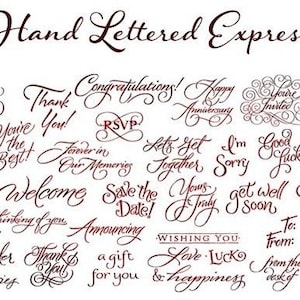 Hand Lettered Express
Congratulations!
Happy
Anniversary
You're
Invited
Thank
You!
RSVP
You're
the
Best!
Forever in
Our Memories
Let's Get
Together
I'm
Sorry
Good
Luck
Welcome
Save the
Date!
Yours
Truly
get well
soon
Thinking of you
Announcing
To:
From:
WISHING YOU
Love · Luck
& happiness
Thank
You!
a gift
for you
from the
desk of